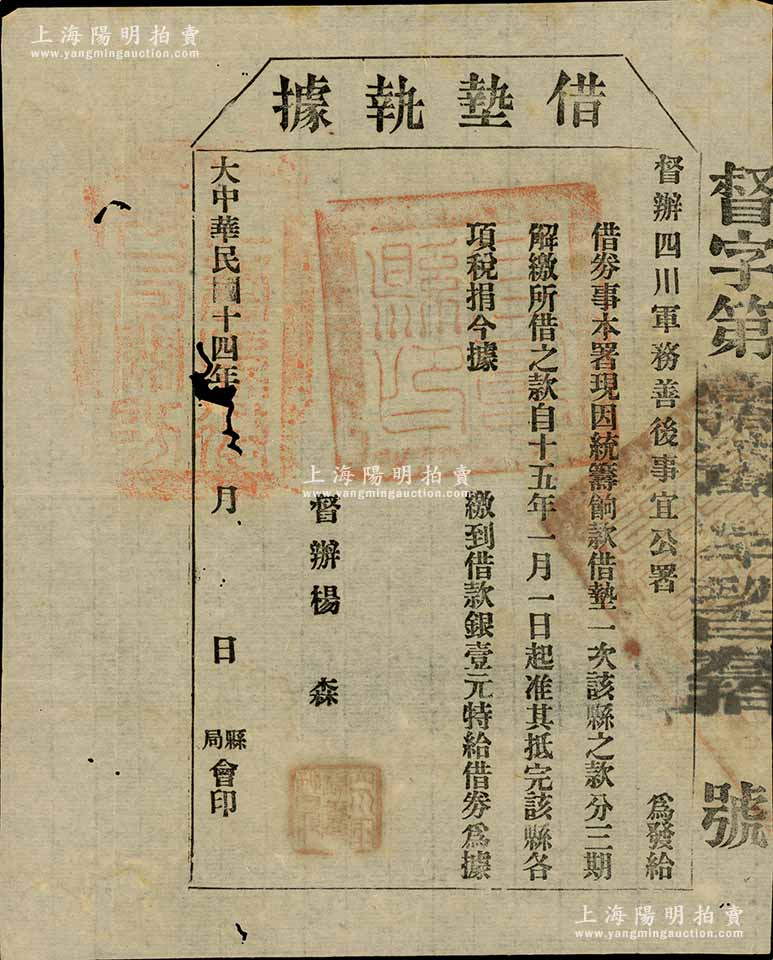 上海陽明拍賣
www.yangmingauction.com
借墊執據
督字第
號
督辦四川軍務善後事宜公署 為發給
借券事本署現因統籌餉款借墊一次該縣之款分三期
解繳所借之款自十五年一月一日起准其抵完該縣各
項稅捐今據 繳到借款銀壹元特給借券為據
督辦楊森
大中華民國十四年 月 日 縣局會印
上海陽明拍賣
www.yangmingauction.com
上海陽明拍賣
www.yangmingauction.com